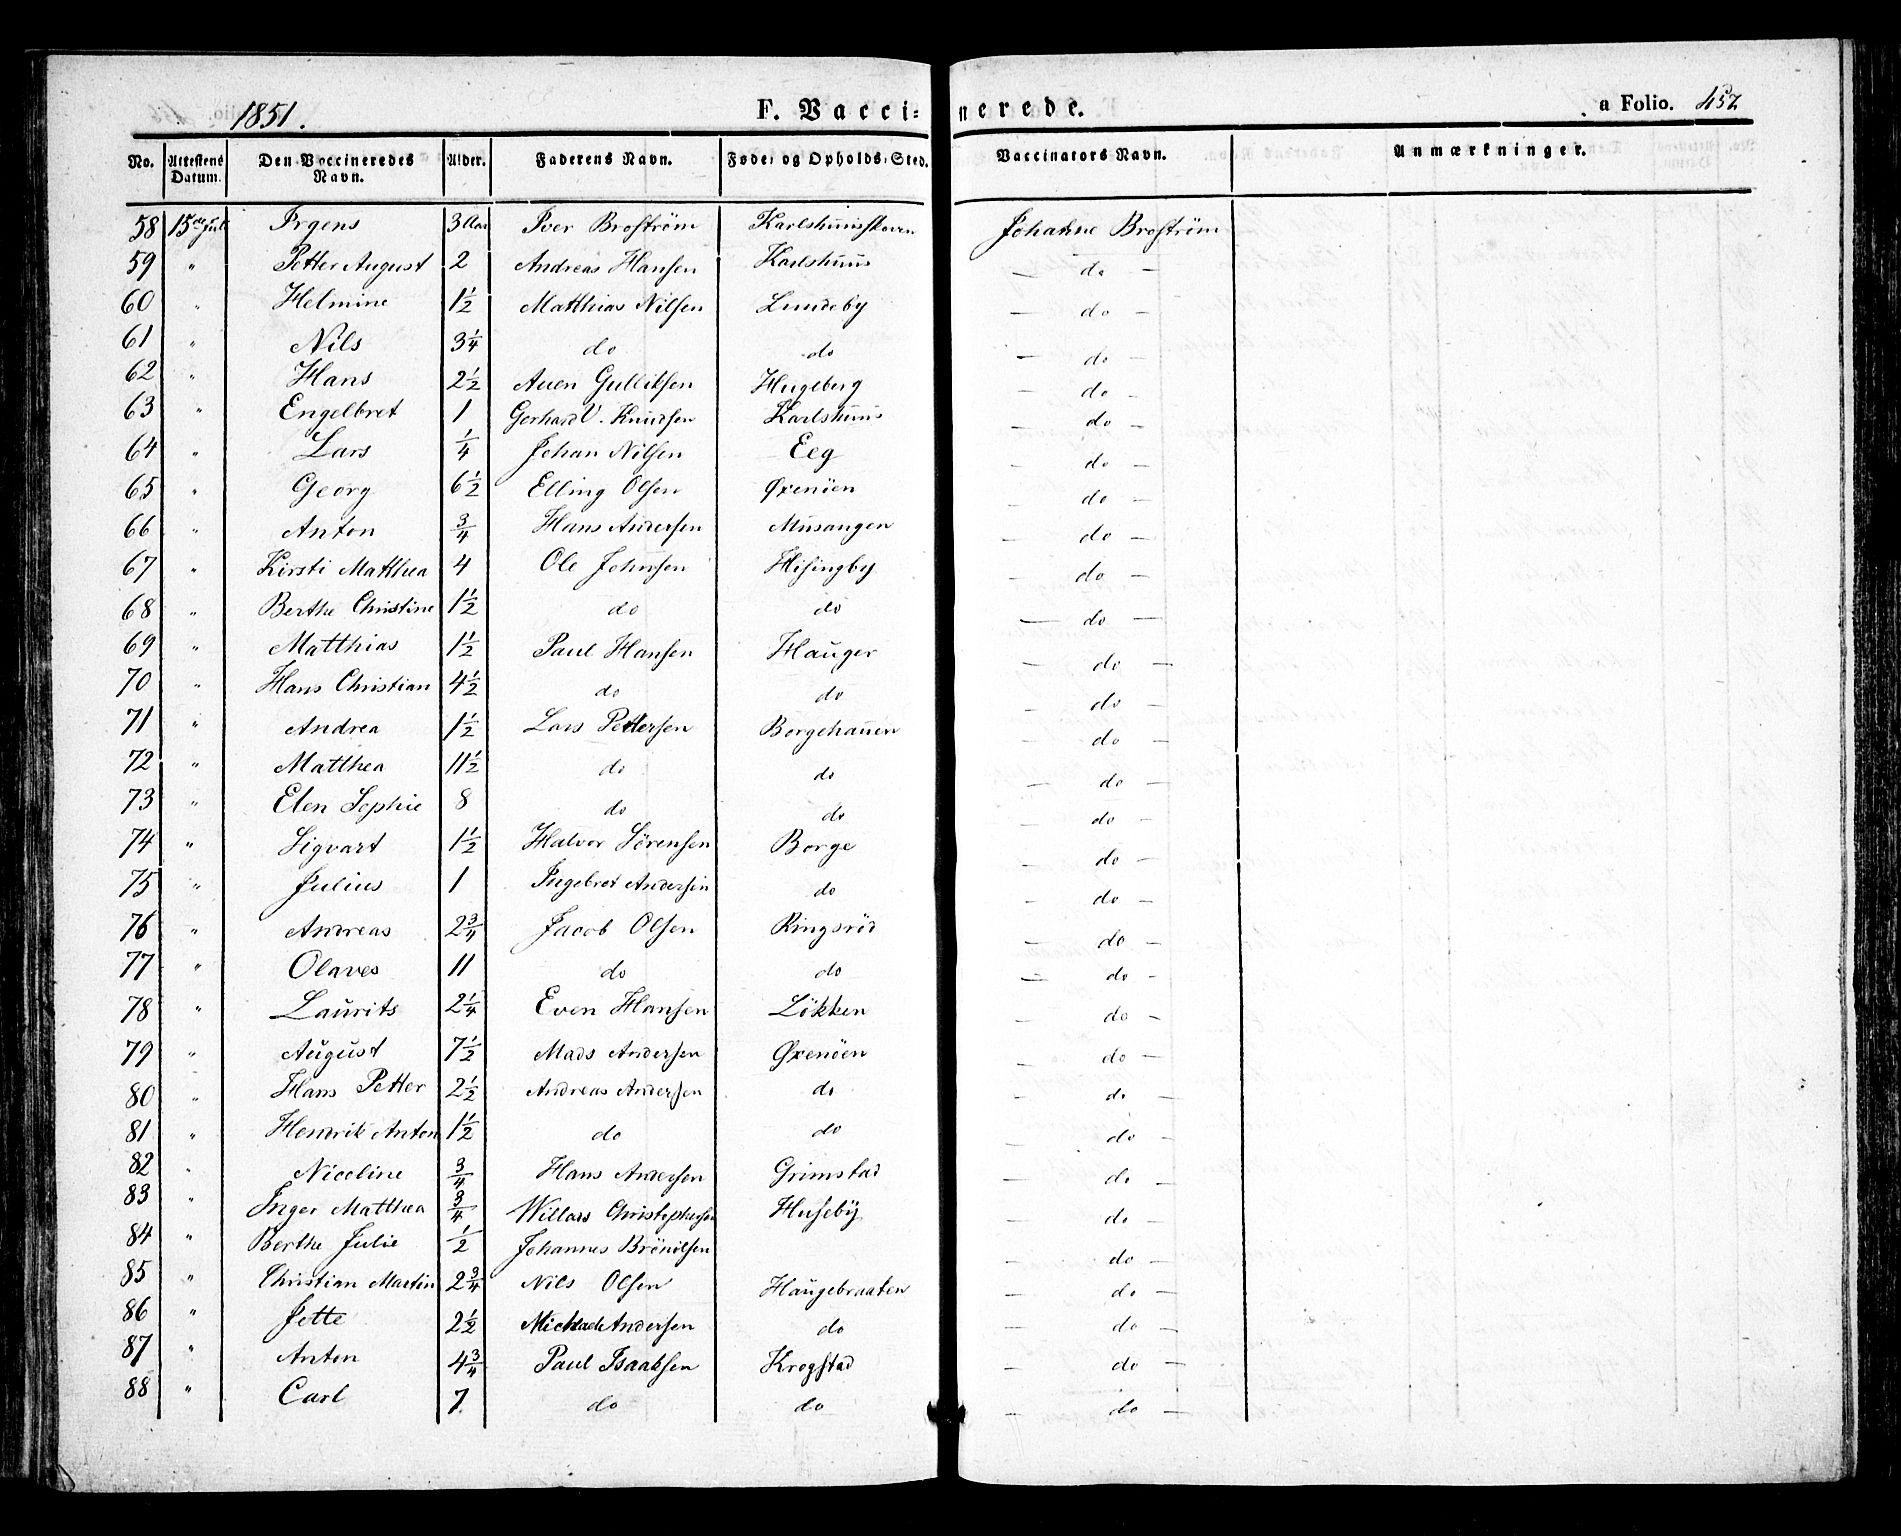 1851. F. Vaccinerede. a Folio. 452
No. Attestens Datum. Den Vaccineredes Navn. Alder. Faderens Navn. Føde- og Opholds-Sted. Vaccinators Navn. Anmærkninger.
58 15de Juli Irgens 3 Aar Iver Broström Karlshuusskoven Johanne Broström
59 " Petter August 2 Andreas Hansen Karlshuus — do —
60 " Helmine 1½ Matthias Nilsen Lundeby — do —
61 " Nils 3¼ do do — do —
62 " Hans 2½ Aven Gulliksen Hugeberg — do —
63 " Engelbret 1 Gerhard V. Knudsen Karlshuus — do —
64 " Lars ¼ Johan Nilsen Eeg — do —
65 " Georg 6½ Elling Olsen Øxenöen — do —
66 " Anton ¾ Hans Andersen Musangen — do —
67 " Kirsti Matthea 4 Ole Johnsen Hisingby — do —
68 " Berthe Christine 1½ do do — do —
69 " Matthias 1½ Paul Hansen Hauger — do —
70 " Hans Christian 4½ do do — do —
71 " Andrea 1½ Lars Pettersen Borgehauen — do —
72 " Matthea 11½ do do — do —
73 " Elen Sophie 8 do do — do —
74 " Sigvart 1½ Halvor Sörensen Borge — do —
75 " Julius 1 Ingebret Andersen do — do —
76 " Andreas 2¾ Jacob Olsen Ringsröd — do —
77 " Olaves 11 do do — do —
78 " Laurits 2¼ Even Hansen Lökken — do —
79 " August 7½ Mads Andersen Øxenöen — do —
80 " Hans Petter 2½ Andreas Andersen do — do —
81 " Hendrik Anton 1½ do do — do —
82 " Nicoline ¾ Hans Andersen Grimstad — do —
83 " Inger Matthea ¾ Willars Christophersen Huseby — do —
84 " Berthe Julie ½ Johannes Brönilsen — do —
85 " Christian Martin 2¾ Nils Olsen Haugebraaten — do —
86 " Jette 2½ Michael Andersen do — do —
87 " Anton 4¾ Paul Isaaksen Krogstad — do —
88 " Carl 7. do do — do —